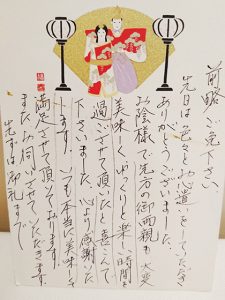 前略ご免下さい。
先日は色々とお心遣いをしていただき
ありがとうございました。
お陰様で先方の御両親も大変
美味しくゆっくりと楽しい時間を
過ごさせて頂いたと喜んで
下さいました。心より感謝いた
します。いつも本当に美味しさに
満足させて頂いております。
またお伺いさせていただきます。
先ずは御礼まで